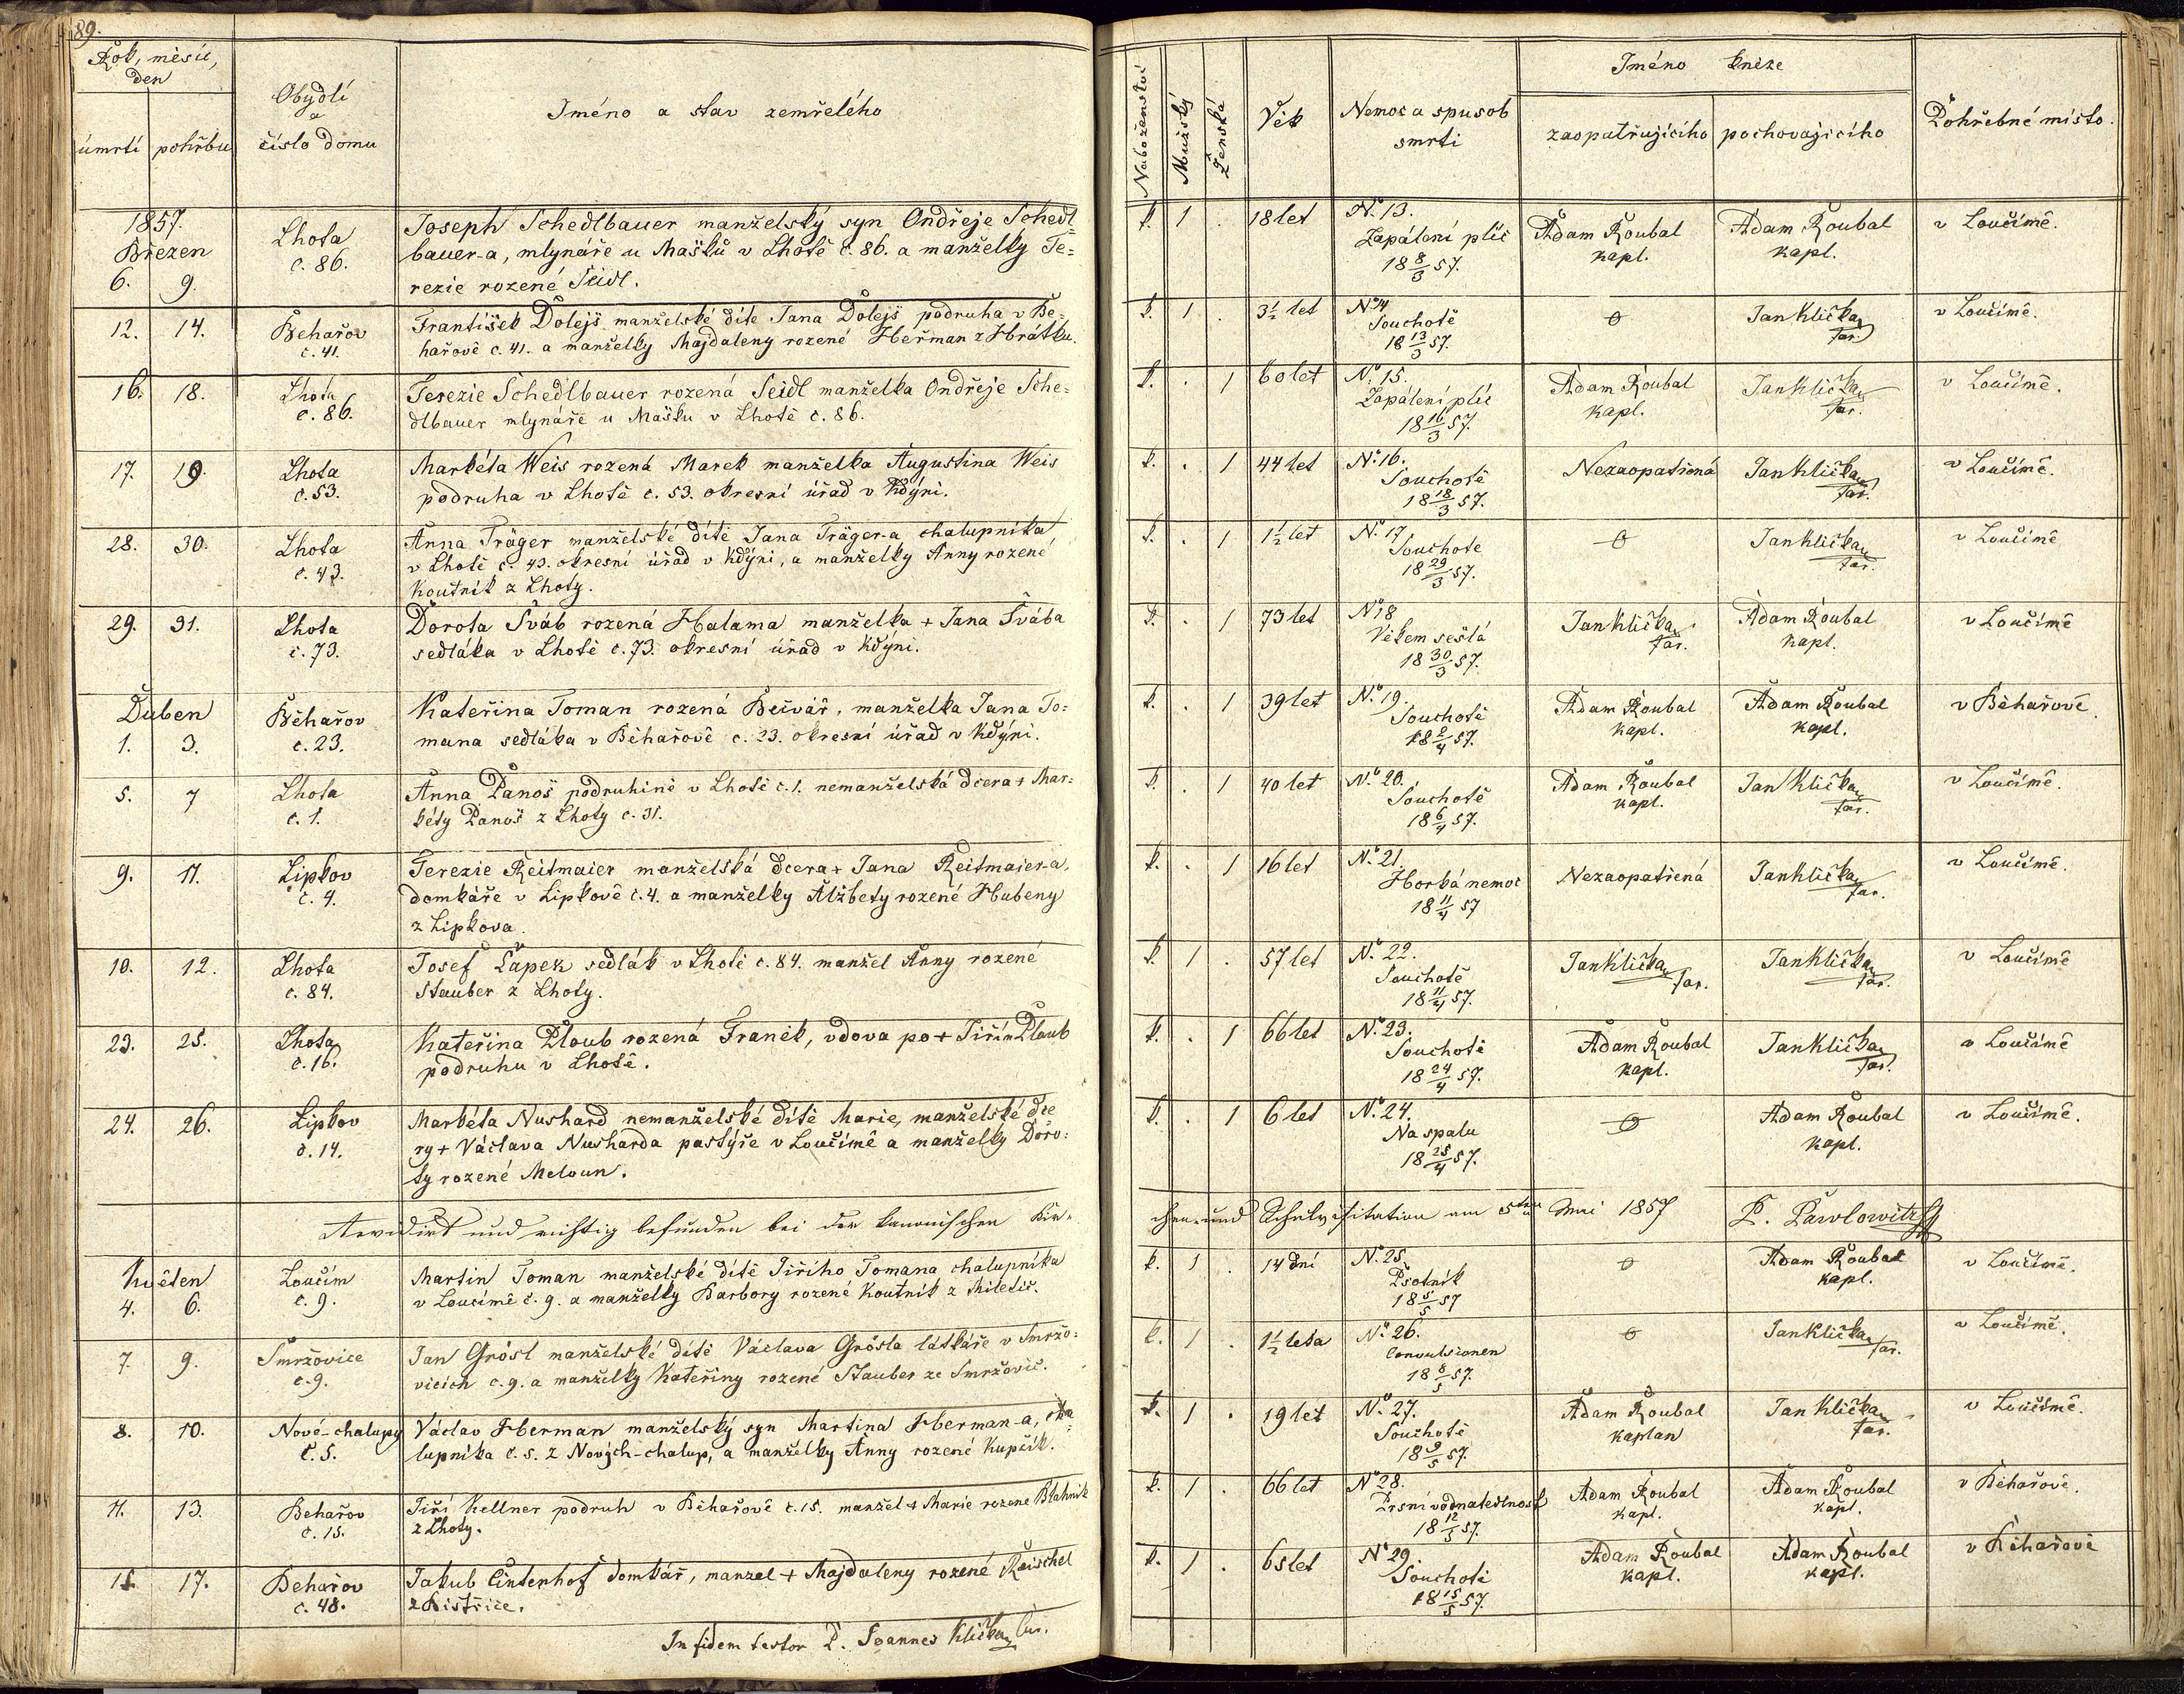 89.
Rok, měsíc,
den
úmrtí pohřbu
Obydlí
a
číslo domu
Jméno a stav zemřelého
Náboženství
Mužský
Ženská
Věk
Nemoc a spusob
smrti
Jméno kněze
zaopatřujícího pochovajícího
Pohřebné místo.
1857.
Březen
6. 9.
Lhota
č. 86.
Joseph Schedlbauer manželský syn Ondřeje Schedl=
bauer-a, mlynáře u Mašků v Lhotě č. 86. a manželky Te=
rezie rozené Seidl.
k. 1 . 18 let
No. 13.
Zapálení plic
18 8/3 57.
Adam Roubal
kapl.
Adam Roubal
kapl.
v Loučímě.
12. 14.
Běhařov
č. 41.
František Dolejš manželské dítě Jana Dolejš podruha v Bě=
hařově č. 41. a manželky Majdaleny rozené Heřman z Hrátku.
k. 1 . 3½ let
No 14
Souchotě
18 13/3 57.
o
Jan Klička
far.
v Loučímě.
16. 18.
Lhota
č. 86.
Terezie Schedlbauer rozená Seidl manželka Ondřeje Sche=
dlbauer mlynáře u Mašku v Lhotě č. 86.
k. . 1 60 let
No. 15.
Zapálení plic
18 16/3 57.
Adam Roubal
kapl.
Jan Klička
far.
v Loučímě.
17. 19.
Lhota
č. 53.
Markéta Weis rozená Marek manželka Augustina Weis
podruha v Lhotě č. 53. okresní úřad v Kdýni.
k. . 1 44 let
No. 16.
Souchotě
18 18/3 57.
Nezaopatřená
Jan Klička
far.
v Loučímě.
28. 30.
Lhota
č. 43.
Anna Träger manželské dítě Jana Träger-a chalupníka
v Lhotě č. 43. okresní úřad v Kdýni, a manželky Anny rozené
Koutník z Lhoty.
k. . 1 1½ let
No. 17
Souchotě
18 29/3 57.
o
Jan Klička
far.
v Loučímě
29. 31.
Lhota
č. 73.
Dorota Šváb rozená Halama manželka + Jana Švába
sedláka v Lhotě č. 73. okresní úřad v Kdýni.
k. . 1 73 let
No 18
Věkem sešlá
18 30/3 57.
Jan Klička
far.
Adam Roubal
kapl.
v Loučímě
Duben
1. 3.
Běhařov
č. 23.
Kateřina Toman rozená Bečvář, manželka Jana To=
mana sedláka v Běhařově č. 23. okresní úřad v Kdýni.
k. . 1 39 let
No. 19.
Souchotě
18 2/4 57.
Adam Roubal
kapl.
Adam Roubal
kapl.
v Běhařově.
5. 7
Lhota
č. 1.
Anna Panoš podruhině v Lhotě č. 1. nemanželská dcera + Mar=
kéty Panoš z Lhoty č. 31.
k. . 1 40 let
No. 20.
Souchotě
18 6/4 57.
Adam Roubal
kapl.
Jan Klička
far.
v Loučímě.
9. 11.
Lipkov
č. 4.
Terezie Reitmaier manželská dcera + Jana Reitmaier-a,
domkáře v Lipkově č. 4. a manželky Alžbety rozené Hubeny
z Lipkova.
k. . 1 16 let
No. 21.
Horká nemoc
18 11/4 57
Nezaopatřená
Jan Klička
far.
v Loučímě.
10. 12.
Lhota
č. 84.
Josef Ťapek sedlák v Lhotě č. 84. manžel Anny rozené
Stauber z Lhoty.
k. 1 . 57 let
No. 22.
Souchotě
18 11/4 57.
Jan Klička
far.
Jan Klička
far.
v Loučímě
23. 25.
Lhota
č. 16.
Kateřina Ploub rozená Franěk, vdova po + Jiřím Ploub
podruhu v Lhotě.
k. . 1 66 let
No. 23.
Souchotě
18 24/4 57.
Adam Roubal
kapl.
Jan Klička
far.
v Loučímě
24. 26.
Lipkov
č. 14.
Markéta Nushard nemanželské dítě Marie, manželské dce
ry + Václava Nusharda pastýře v Loučímě a manželky Doro=
ty rozené Meloun.
k. . 1 6 let
No. 24.
Na spalu
18 25/4 57.
o
Adam Roubal
kapl.
v Loučímě.
Revidirt und richtig befunden bei der kanonischen Kir-
chen- und Schulvisitation am 5ten Mai 1857 P. Pawlowitzky
Květen
4. 6.
Loučim
č. 9.
Martin Toman manželské dítě Jiřího Tomana chalupníka
v Loučímě č. 9. a manželky Barbory rozené Koutník z Miletič.
k. 1 . 14 dní
No. 25.
Psotník
18 5/5 57
o
Adam Roubal
kapl.
v Loučímě.
7. 9.
Smržovice
č. 9.
Jan Grösl manželské dítě Václava Grösla látkáře v Smržo=
vicích č. 9. a manželky Kateřiny rozené Stauber ze Smržovic.
k. 1 . 1½ leta
No. 26.
Convulsionen
18 8/5 57.
o
Jan Klička
far.
v Loučímě.
8. 10.
Nové-chalupy
č. 5.
Václav Herman manželský syn Martina Herman-a, cha
lupníka č. 5. z Nových-chalup, a manželky Anny rozené Kupčík.
k. 1 . 19 let
No. 27.
Souchotě
18 9/5 57.
Adam Roubal
kaplan
Jan Klička
far.
v Loučímě.
11. 13.
Behařov
č. 15.
Jiří Kellner podruh v Běhařově č. 15. manžel + Marie rozené Blahnik
z Lhoty.
k. 1 . 66 let
No 28.
Prsní vodnatedlnost
18 12/5 57.
Adam Roubal
kapl.
Adam Roubal
kapl.
v Běhařově.
15 17.
Behařov
č. 48.
Jakub Cintenhof domkář, manzel + Majdaleny rozené Reischel
z Bistřice.
k. 1 . 65 let
No 29.
Souchotě
18 15/5 57.
Adam Roubal
kapl.
Adam Roubal
kapl.
v Běhařově
In fidem testor P. Joannes Klička Cur.